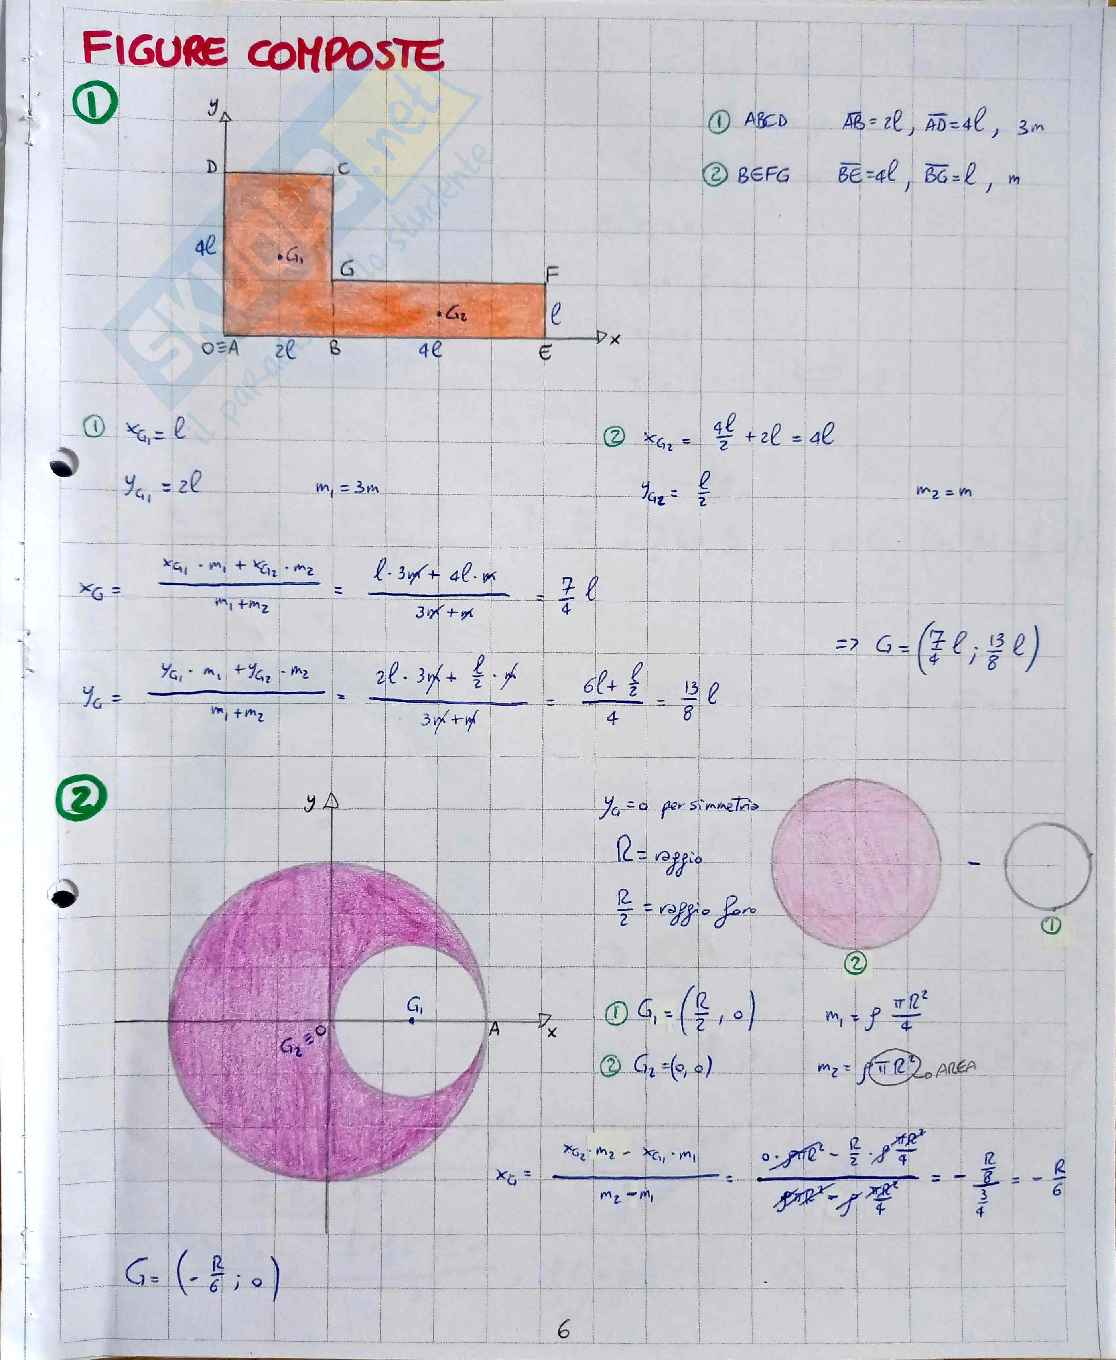 FIGURE COMPOSTE
①
y
D C
4l
G₁
G F
G₂ l
O≡A 2l B 4l E x
① ABCD AB̅=2l, AD̅=4l, 3m
② BEFG BE̅=4l, BG̅=l, m
① x_G₁ = l
y_G₁ = 2l m₁ = 3m
② x_G₂ = 4l/2 + 2l = 4l
y_G₂ = l/2 m₂ = m
x_G = (x_G₁ · m₁ + x_G₂ · m₂)/(m₁+m₂) = (l · 3m + 4l · m)/(3m+m) = 7/4 l
=> G = (7/4 l ; 13/8 l)
y_G = (y_G₁ · m₁ + y_G₂ · m₂)/(m₁+m₂) = (2l · 3m + l/2 · m)/(3m+m) = (6l + l/2)/4 = 13/8 l
②
y
G₁
G₂≡O A x
y_G=0 per simmetria
R = raggio
R/2 = raggio foro
-
①
②
① G₁ = (R/2, 0) m₁ = ρ πR²/4
② G₂ = (0, 0) m₂ = ρπR² → AREA
x_G = (x_G₂ · m₂ - x_G₁ · m₁)/(m₂-m₁) = (0 · ρπR² - R/2 · ρ πR²/4)/(ρπR² - ρ πR²/4) = - (R/8)/(3/4) = - R/6
G = (- R/6 ; 0)
6
SKUOLA.net